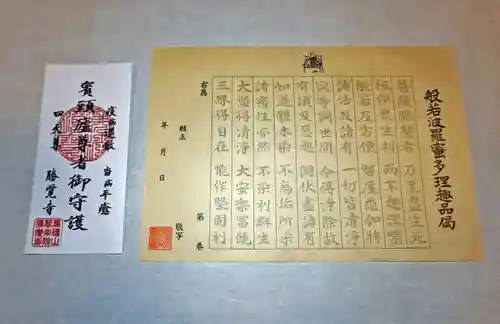 般若波羅蜜多理趣品
菩薩勝慧者 乃至盡生死
恒作衆生利 而不趣涅槃
般若及方便 智度悉加持
諸法及諸有 一切皆清淨
欲等調世間 令得淨除故
有頂及惡趣 調伏盡諸有
如蓮體本染 不為垢所染
諸慾性亦然 不染利群生
大慾得清淨 大安樂富饒
三界得自在 能作堅固利
右為 第 巻
願主
年 月 日 敬写
當病平癒
賓頭盧尊者御守護
勝覺寺